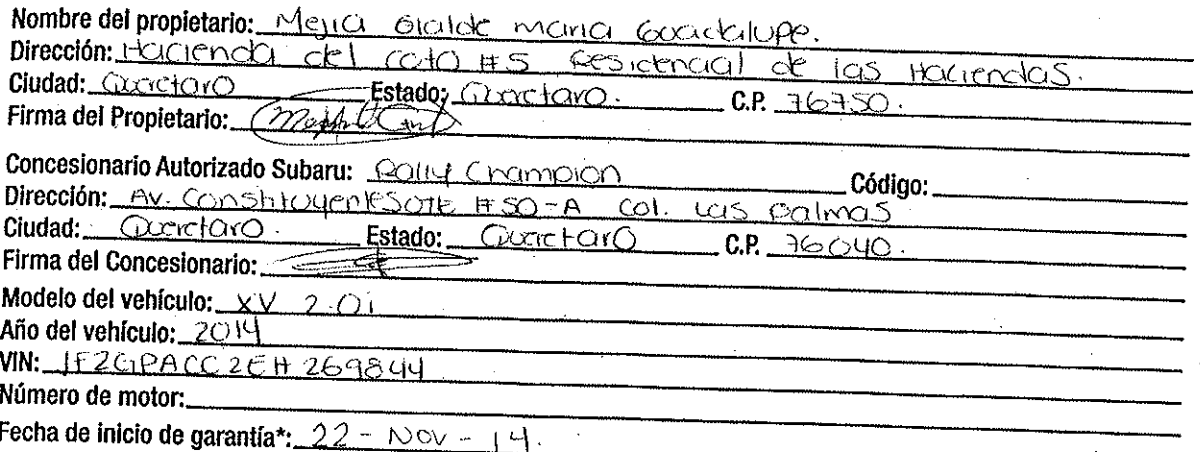 Nombre del propietario: Mejia Olalde maria Guadalupe.
Dirección: Hacienda del coto #5 Residencial de las Haciendas.
Ciudad: Queretaro Estado: Queretaro. C.P. 76750.
Firma del Propietario:
Concesionario Autorizado Subaru: Rally Champion Código:
Dirección: Av. Constituyentes OTE #50-A Col. Las Palmas
Ciudad: Queretaro. Estado: Queretaro C.P. 76040.
Firma del Concesionario:
Modelo del vehículo: XV 2.0i
Año del vehículo: 2014
VIN: JF2GPACC2EH269844
Número de motor:
Fecha de inicio de garantía*: 22 - Nov - 14.